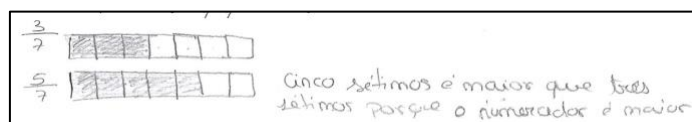 3/7
5/7
Cinco sétimos é maior que tres
sétimos porque o numerador é maior